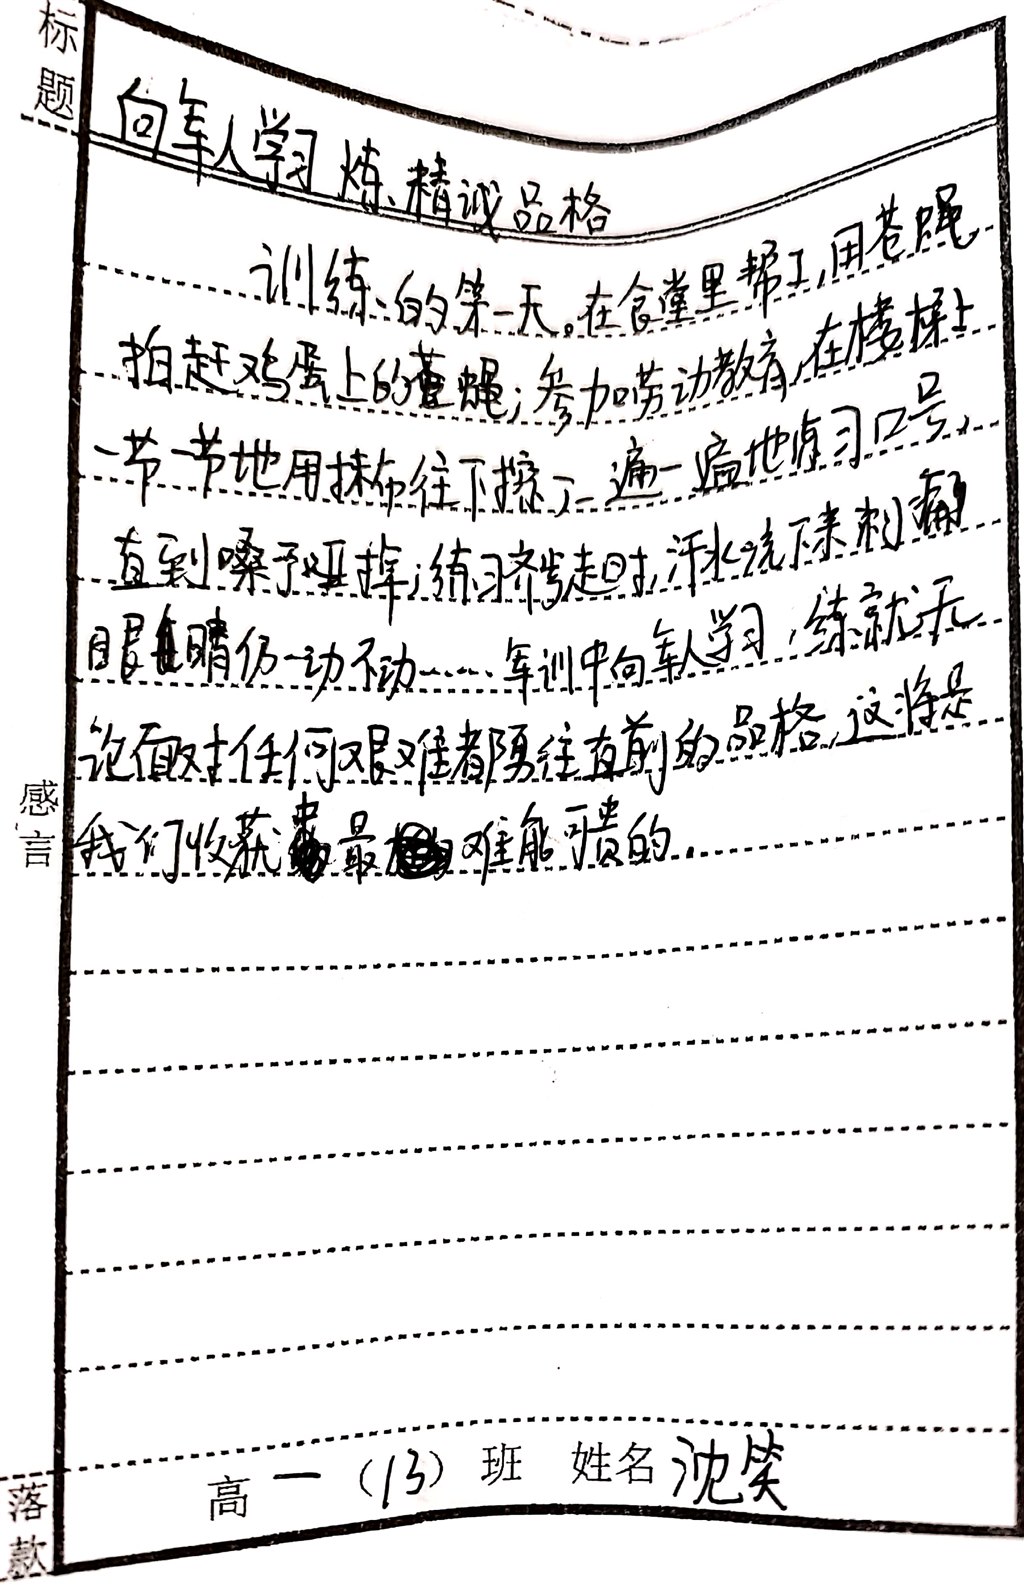 标题
向军人学习 炼精诚品格
训练的第一天。在食堂里帮工,用苍蝇
拍赶鸡蛋上的苍蝇;参加劳动教育,在楼梯上
一节一节地用抹布往下擦;一遍一遍地练习口号,
直到嗓子哑掉;练习齐步走时,汗水流下来刺痛
眼睛仍一动不动……军训中向军人学习,练就无
论面对任何艰难都勇往直前的品格,这将是
我们收获最难能可贵的.
感言
高一(13)班 姓名 沈笑
落款